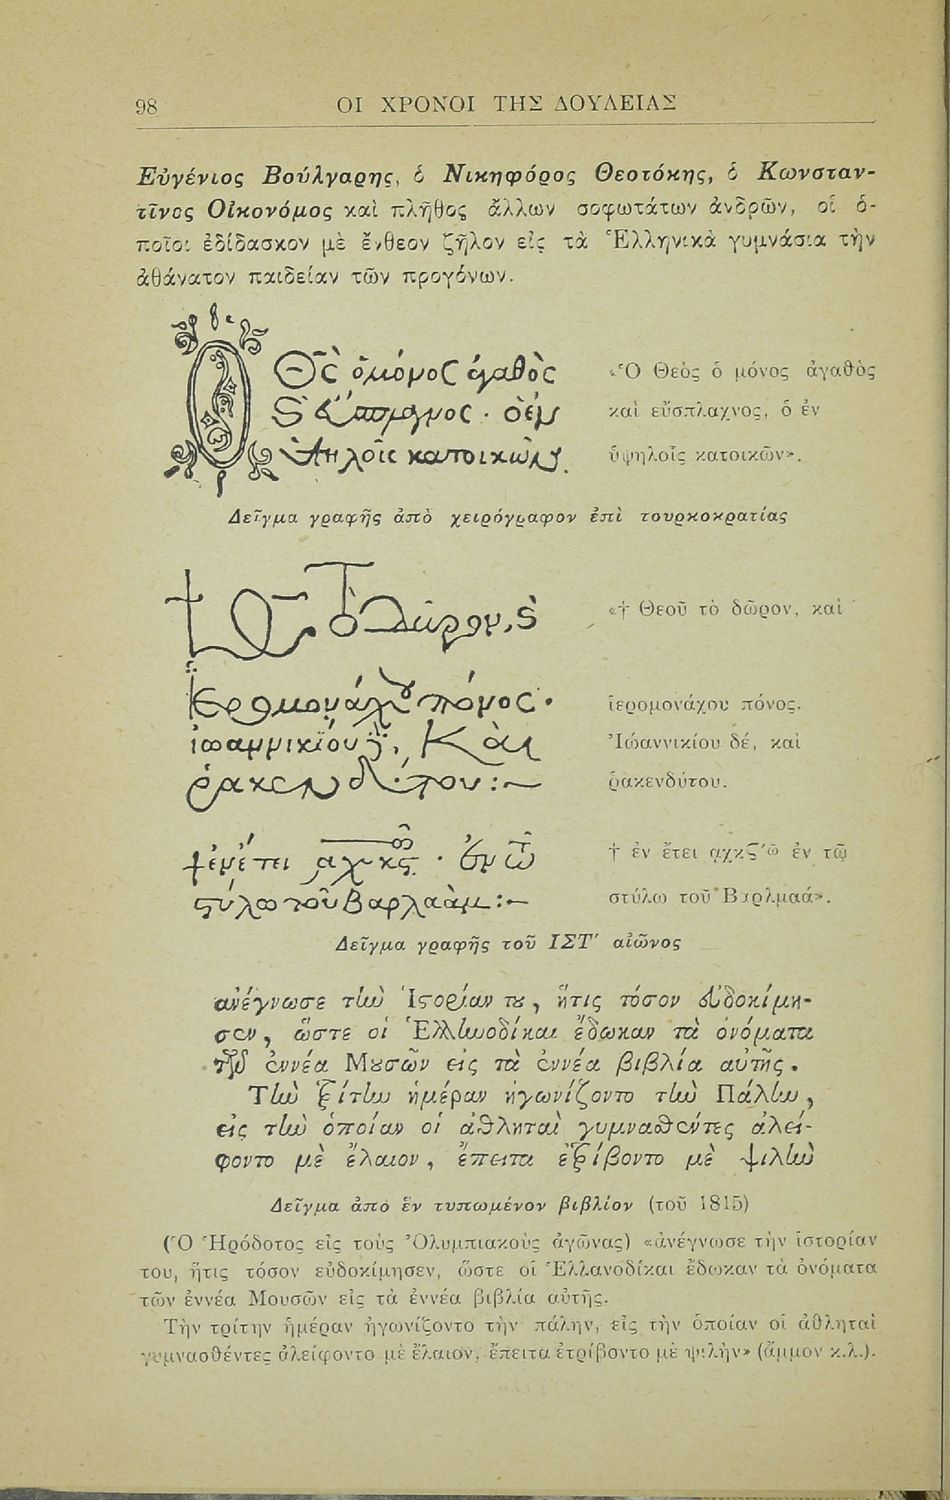 98 ΟΙ ΧΡΟΝΟΙ ΤΗΣ ΔΟΥΛΕΙΑΣ
Εὐγένιος Βούλγαρης, ὁ Νικηφόρος Θεοτόκης, ὁ Κωνσταν-
τῖνος Οἰκονόμος καὶ πλῆθος ἄλλων σοφωτάτων ἀνδρῶν, οἱ ὁ-
ποῖοι ἐδίδασκον μὲ ἔνθεον ζῆλον εἰς τὰ Ἑλληνικὰ γυμνάσια τὴν
ἀθάνατον παιδείαν τῶν προγόνων.
Ὁ Θς ὁ μόνος ἀγαθὸς
«Ὁ Θεὸς ὁ μόνος ἀγαθὸς
καὶ εὔσπλαχνος, ὁ ἐν
ὑψηλοῖς κατοικῶν
ὑψηλοῖς κατοικῶν».
Δεῖγμα γραφῆς ἀπὸ χειρόγραφον ἐπὶ τουρκοκρατίας
«† Θεοῦ τὸ δῶρον, καὶ
ἱερομονάχου πόνος.
ἱερομονάχου πόνος.
Ἰωαννικίου δέ, καὶ
Ἰώαννικίου δέ, καὶ
ῥακενδύτου:
ῥακενδύτου.
† ἐν ἔτει αχκϛ · ἐν τῶ
† ἐν ἔτει αχκϚʹῶ ἐν τῷ
στύλω τοῦ Βαρλαὰμ:
στύλω τοῦ Βαρλμαά».
Δεῖγμα γραφῆς τοῦ ΙΣΤʹ αἰῶνος
ἀνέγνωσε τὴν Ἱστορίαν τȣ, ἥτις τόσον εὐδοκίμη-
σεν, ὥστε οἱ Ἑλλανοδίκαι ἔδωκαν τὰ ὀνόματα
τῶν ἐννέα Μȣσῶν εἰς τὰ ἐννέα βιβλία αὐτῆς.
Τὴν τρίτην ἡμέραν ἠγωνίζοντο τὴν Πάλην,
εἰς τὴν ὁποίαν οἱ ἀθληταὶ γυμναθέντες ἀλεί-
φοντο μὲ ἔλαιον, ἔπειτα ἐτρίβοντο μὲ ψιλὴν
Δεῖγμα ἀπὸ ἓν τυπωμένον βιβλίον (τοῦ 1815)
(Ὁ Ἡρόδοτος εἰς τοὺς Ὀλυμπιακοὺς ἀγῶνας) «ἀνέγνωσε τὴν ἱστορίαν
του, ἥτις τόσον εὐδοκίμησεν, ὥστε οἱ Ἑλλανοδίκαι ἔδωκαν τὰ ὀνόματα
τῶν ἐννέα Μουσῶν εἰς τὰ ἐννέα βιβλία αὐτῆς.
Τὴν τρίτην ἡμέραν ἠγωνίζοντο τὴν πάλην, εἰς τὴν ὁποίαν οἱ ἀθληταὶ
γυμνασθέντες ἀλείφοντο μὲ ἔλαιον, ἔπειτα ἐτρίβοντο μὲ ψιλὴν» (ἄμμον κ.λ.).